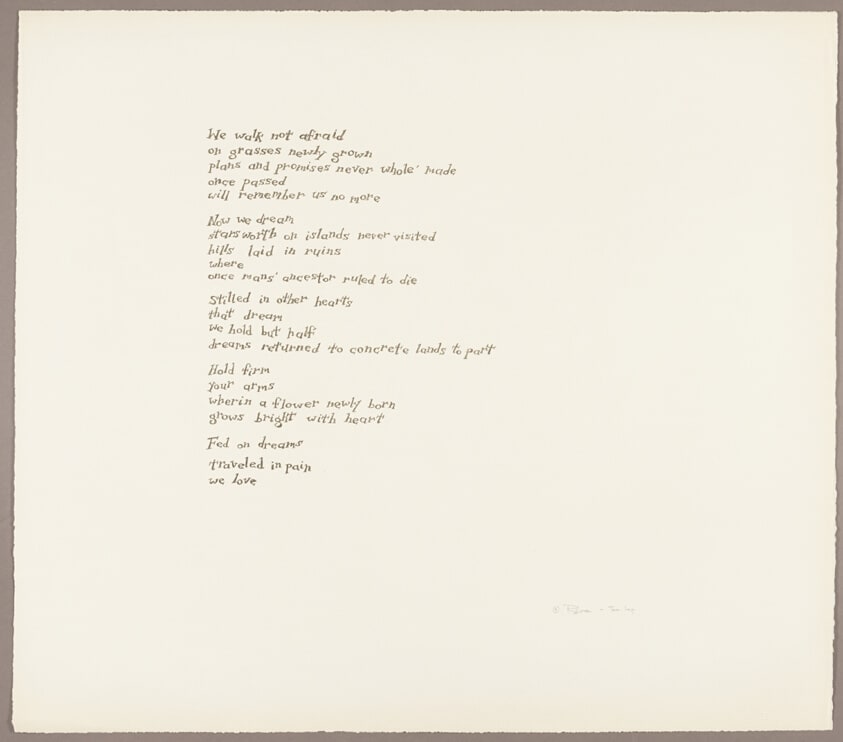 We walk not afraid
on grasses newly grown
plans and promises never whole' made
once passed
will remember us no more
Now we dream
stars worth on islands never visited
hills laid in ruins
where
once mans' ancestor ruled to die
stilled in other hearts
that dream
we hold but half
dreams returned to concrete lands to part
Hold firm
your arms
wherin a flower newly born
grows bright with heart
Fed on dreams
traveled in pain
we love